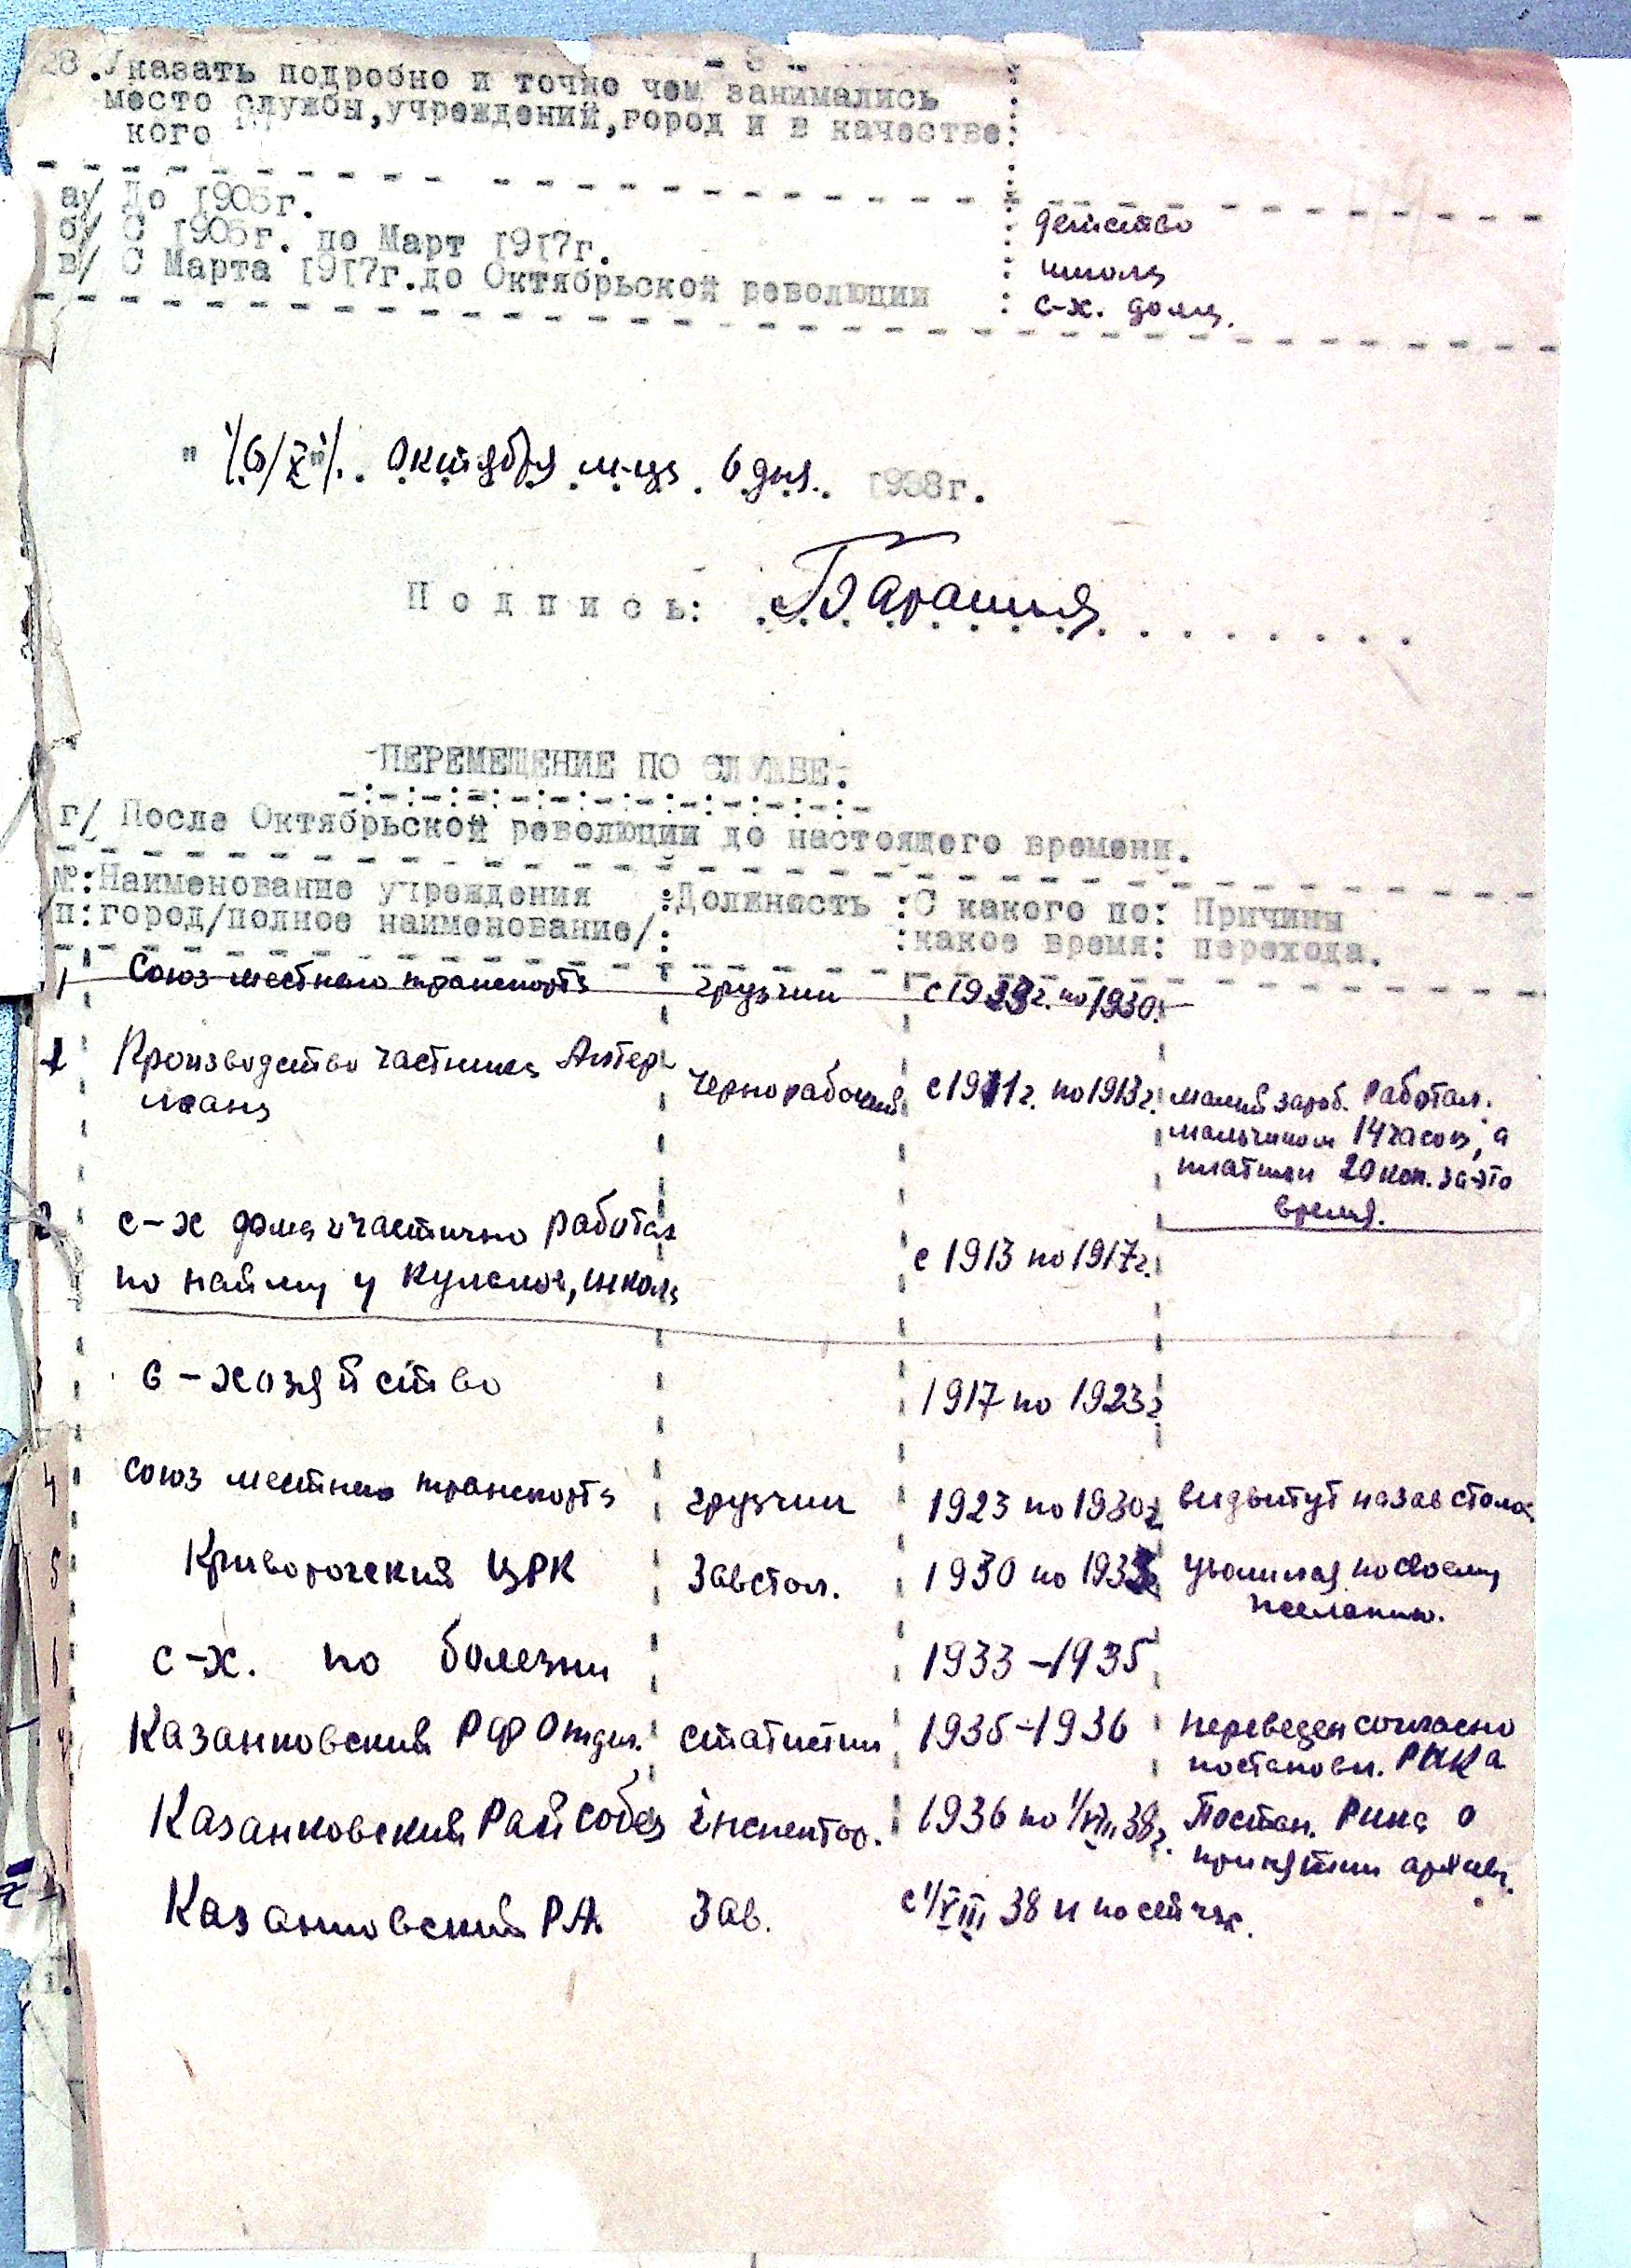 28. Указать подробно и точно чем занимались
место службы, учреждений, город и в качестве
кого
а/ До 1905г.
детство
б/ С 1905г. по Март 1917г.
школа
в/ С Марта 1917г. до Октябрьской революции
с-х. дома.
Октября м-ца 6 дня. 1938г.
Подпись:
-ПЕРЕМЕЩЕНИЕ ПО СЛУЖБЕ-
г/ После Октябрьской революции до настоящего времени.
№:Наименование учреждения :Должность :С какого по: Причины
п:город/полное наименование/: :какое время: перехода.
1 Союз местного транспорта грузчик с 1923г. по 1930.
1 Производство частника Алтер-
мана чернорабочий с 1911г. по 1913г. малый зараб. Работал.
мальчиком 14 часов, а
платили 20 коп. за это
время.
2 с-х дома и частично работал
по найму у кулаков, школа с 1913 по 1917г.
с-хозяйство 1917 по 1923г
4 союз местного транспорта грузчик 1923 по 1930г видвитут на зав столом
5 Криворожский ЦРК Завстол. 1930 по 1933 уволился по своему
желанию.
с-х. по болезни 1933-1935
Казанковский РФ Отдел. статистик 1935-1936 переведен согласно
постановл. РИКа
Казанковский Райсобез інспектор. 1936 по 1/VIII 38г. Постан. Рика о
принятии архива.
Казанковский РА Зав. с 1/VIII 38 и по сей час.